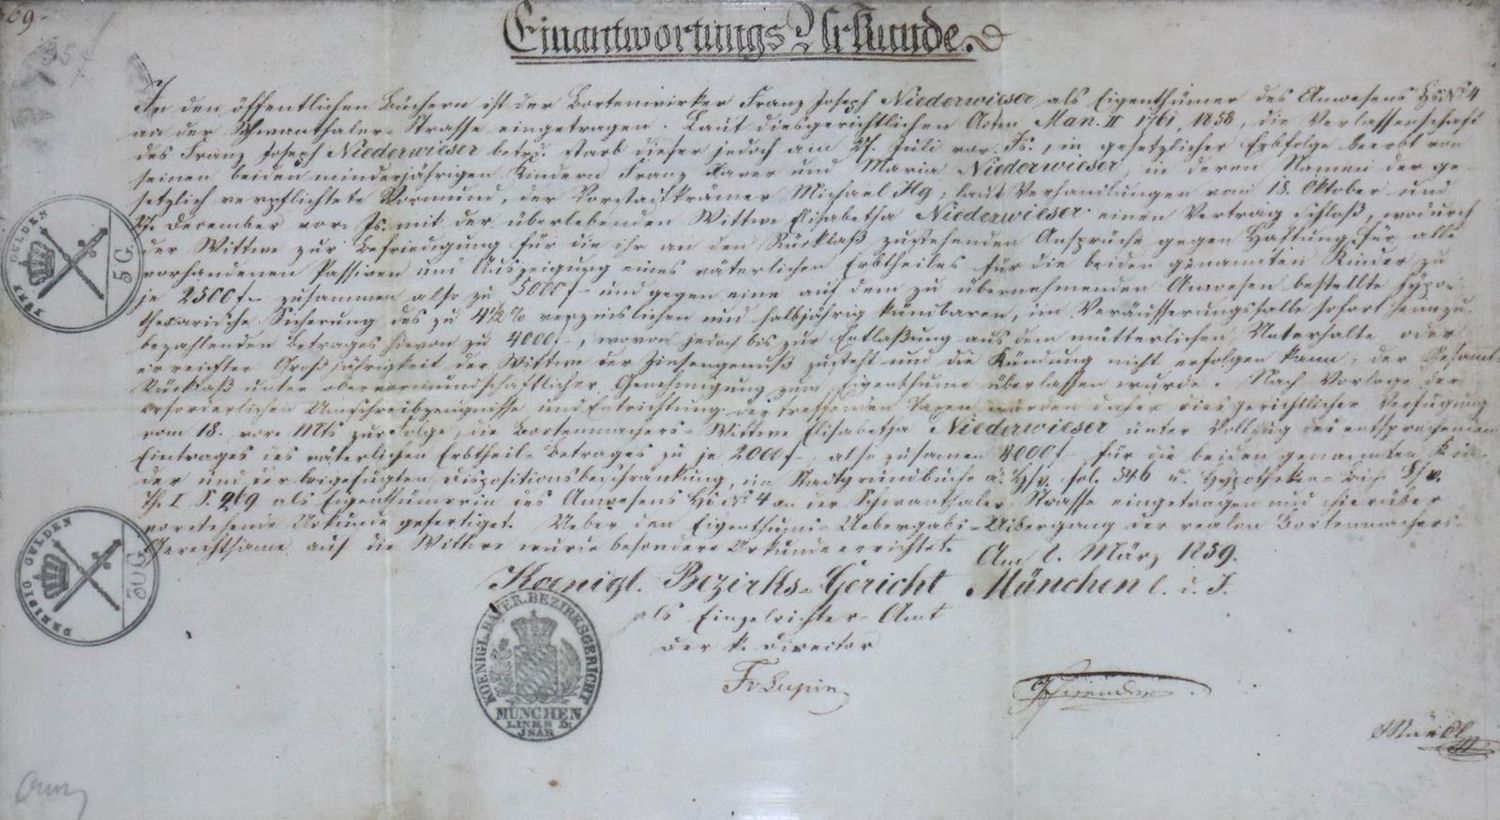 369.
Einantwortungs Urkunde.
In den öffentlichen Büchern ist der Bortenwirker Franz Joseph Niederwieser als Eigenthümer des Anwesens Hs N° 4
an der Schwanthaler-Strasse eingetragen. Laut diesgerichtlichen Acten Man. II 1761, 1858, die Verlassenschaft
des Franz Joseph Niederwieser betr. starb dieser jedoch am 27. Juli vor. Js., in gesetzlicher Erbfolge beerbt von
seinen beiden minderjährigen Kindern Franz Xaver und Maria Niederwieser, in deren Namen der ge-
setzlich verpflichtete Vormund, der Vorstadtkrämer Michael Ilg, laut Verhandlungen vom 18. Oktober und
27. December vor. Js. mit der überlebenden Wittwe Elisabetha Niederwieser einen Vertrag schloß, wodurch
der Wittwe zur Befriedigung für die ihr an den Rücklaß zustehenden Ansprüche gegen Haftung für alle
vorhandenen Passiven und Auszeigung eines väterlichen Erbtheiles für die beiden genannten Kinder zu
je 2500 f zusammen also zu 5000 f und gegen eine auf dem zu übernehmenden Anwesen bestellte hypo-
thekarische Sicherung des zu 4½% verzinslichen und halbjährig kündbaren, im Veräusserungsfalle sofort heimzu-
bezahlenden Betrages hievon zu 4000 f, wovon jedoch bis zur Entlaßung aus dem mütterlichen Unterhalte oder
erreichter Großjährigkeit der Wittwe der Zinsengenuß zusteht und die Kündung nicht erfolgen kann, der Gesammt-
Rücklaß unter obervormundschaftlicher Genehmigung zum Eigenthume überlassen wurde. Nach Vorlage der
erforderlichen Umschreibzeugnisse und Entrichtung der treffenden Taxen wurden daher diesgerichtlicher Verfügung
vom 18. vor. Mts zur Folge, die Bortenmachers-Wittwe Elisabetha Niederwieser unter Vollzug des entsprechenden
Eintrages des väterlichen Erbtheils-Betrages zu je 2000 f, also zusamen 4000 f für die beiden genannten Kin-
der und der beigefügten Dispositionsbeschränkung, im Stadtgrundbuche fol. 346 u. Hypotheken-
Th. I S. 969 als Eigenthümerin des Anwesens Hs N° 4 an der Schwanthaler Strasse eingetragen und hierüber
vorstehende Urkunde gefertiget. Ueber den Eigenthums-Uebergabs-Uibergang der realen Bortenmachers-
Gerechtsame auf die Wittwe wurde besondere Urkunde errichtet.
Am 1. März 1859.
Koenigl. Bezirks-Gericht München l. d. I.
als Einzelrichter-Amt
Der k. Director
Fr Lupin
FÜNF GULDEN
5 G.
DREISIG GULDEN
30 G.
KOENIGL. BAYER. BEZIRKSGERICHT
MÜNCHEN
LINKS D.
ISAR